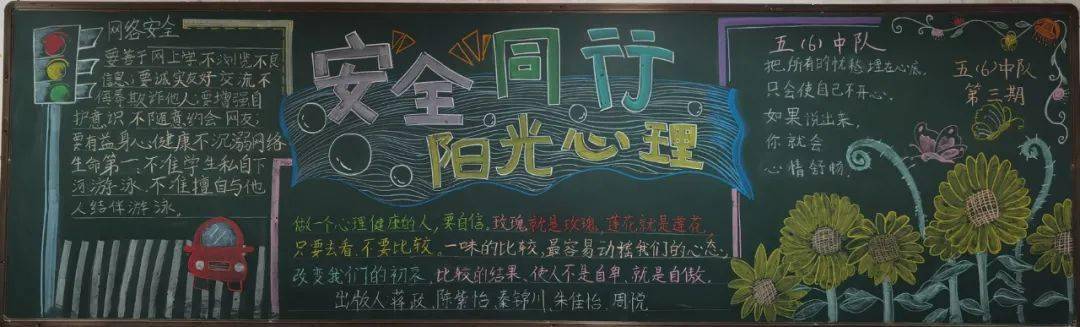 网络安全
要善于网上学,不浏览不良
信息;要诚实友好交流,不
侮辱欺诈他人;要增强自
护意识,不随意约会网友;
要有益身心健康,不沉溺网络
生命第一:不准学生私自下
河游泳,不准擅自与他
人结伴游泳。
安全同行
阳光心理
做一个心理健康的人,要自信。玫瑰就是玫瑰,莲花就是莲花,
只要去看,不要比较。一味的比较,最容易动摇我们的心态,
改变我们的初衷。比较的结果,使人不是自卑,就是自傲。
出版人:蒋政,陈莹怡,秦锦川,朱佳怡,周悦
五(6)中队
把所有的忧愁埋在心底,
只会使自己不开心。
如果说出来,
你就会
心情舒畅。
五(6)中队
第三期